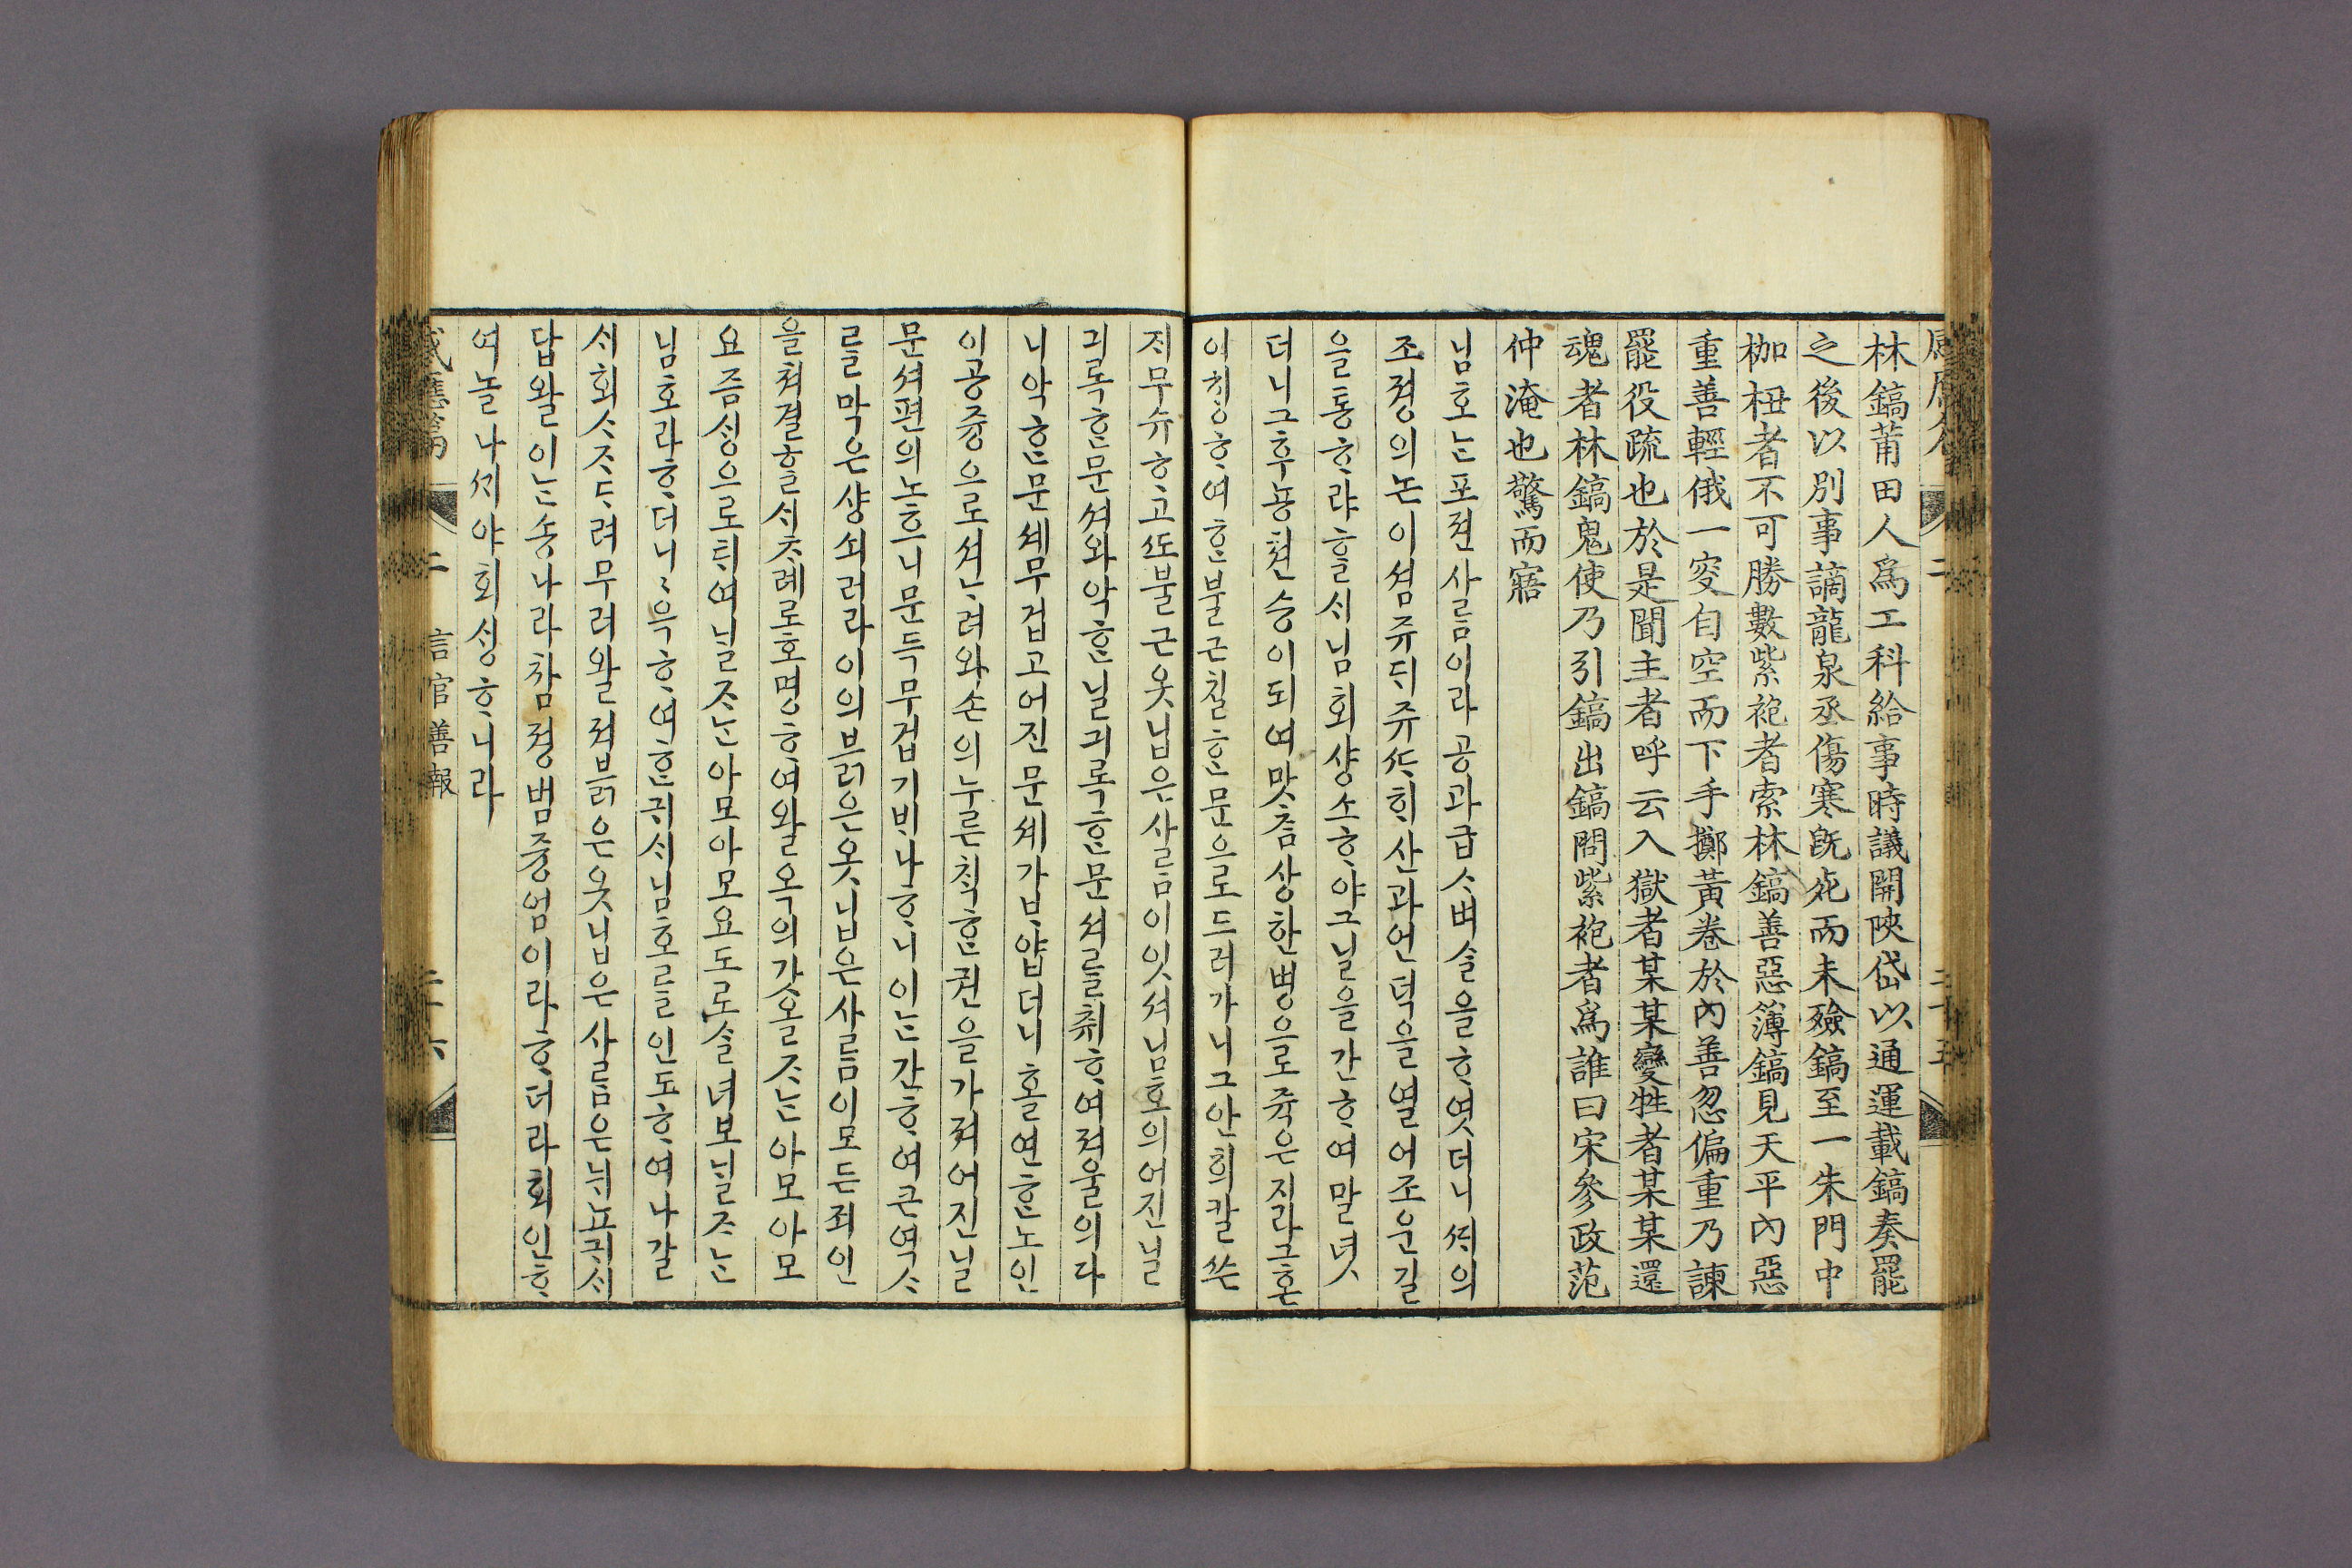 林鎬莆田人爲工科給事時議開陝岱以通運載鎬奏罷
之後以別事謫龍泉丞傷寒旣死而未殮鎬至一朱門中
枷杻者不可勝數紫袍者索林鎬善惡簿鎬見天平內惡
重善輕俄一窔自空而下手擲黃卷於內善忽偏重乃諫
罷役疏也於是聞主者呼云入獄者某某變牲者某某還
魂者林鎬鬼使乃引鎬出鎬問紫袍者爲誰曰宋參政范
仲淹也驚而寤
님호ᄂᆞᆫ포젼사ᄅᆞᆷ이라공과급ᄉᆞ벼ᄉᆞᆯ을ᄒᆞ엿더니셔의
조졍의논이셤쥬ᄃᆡ쥬ᄯᆞᄒᆡ산과언덕을열어조운길
을통ᄒᆞ랴ᄒᆞᆯᄉᆡ님회샹소ᄒᆞ야그닐을간ᄒᆞ여말녓
더니그후뇽쳔승이되여맛ᄎᆞᆷ상한병으로쥭은지라그혼
이ᄒᆞ여ᄒᆞᆫ불근칠ᄒᆞᆫ문으로드러가니그안희칼쓴
ᄌᆡ무슈ᄒᆞ고ᄯᅩ불근옷닙은사ᄅᆞᆷ이잇셔님호의어진닐
긔록ᄒᆞᆫ문셔와악ᄒᆞᆫ닐긔록ᄒᆞᆫ문셔ᄅᆞᆯ취ᄒᆞ여져울의다
니악ᄒᆞᆫ문셰무겁고어진문셰가ᄇᆞ얍더니홀연ᄒᆞᆫ노인
이공즁으로셔ᄂᆞ려와손의누른ᄎᆡᆨᄒᆞᆫ권을가져어진닐
문셔편의노흐니문득무겁기ᄇᆡ나ᄒᆞ니이ᄂᆞᆫ간ᄒᆞ여근역ᄉᆞ
ᄅᆞᆯ막은샹쇠러라이의븕은옷닙은사ᄅᆞᆷ이모든죄인
을쳐결ᄒᆞᆯᄉᆡᄎᆞ례로호명ᄒᆞ여왈옥의갓올ᄌᆞᄂᆞᆫ아모아모
요즘ᄉᆡᆼ으로되여닐ᄌᆞᄂᆞᆫ아모아모요도로ᄉᆞᆯ녀보ᄂᆡᆯᄌᆞᄂᆞᆫ
님호라ᄒᆞ더니〻윽ᄒᆞ여ᄒᆞᆫ귀ᄉᆡ님호ᄅᆞᆯ인도ᄒᆞ여나갈
ᄉᆡ회ᄉᆞᄌᆞᄃᆞ려무러왈져븕은옷닙은사ᄅᆞᆷ은뉘뇨귀ᄉᆡ
답왈이ᄂᆞᆫ송나라참졍범즁엄이라ᄒᆞ더라회인ᄒᆞ
여놀나ᄭᆡ야회ᄉᆡᆼᄒᆞ니라
感應篇 二 言官善報 二十六